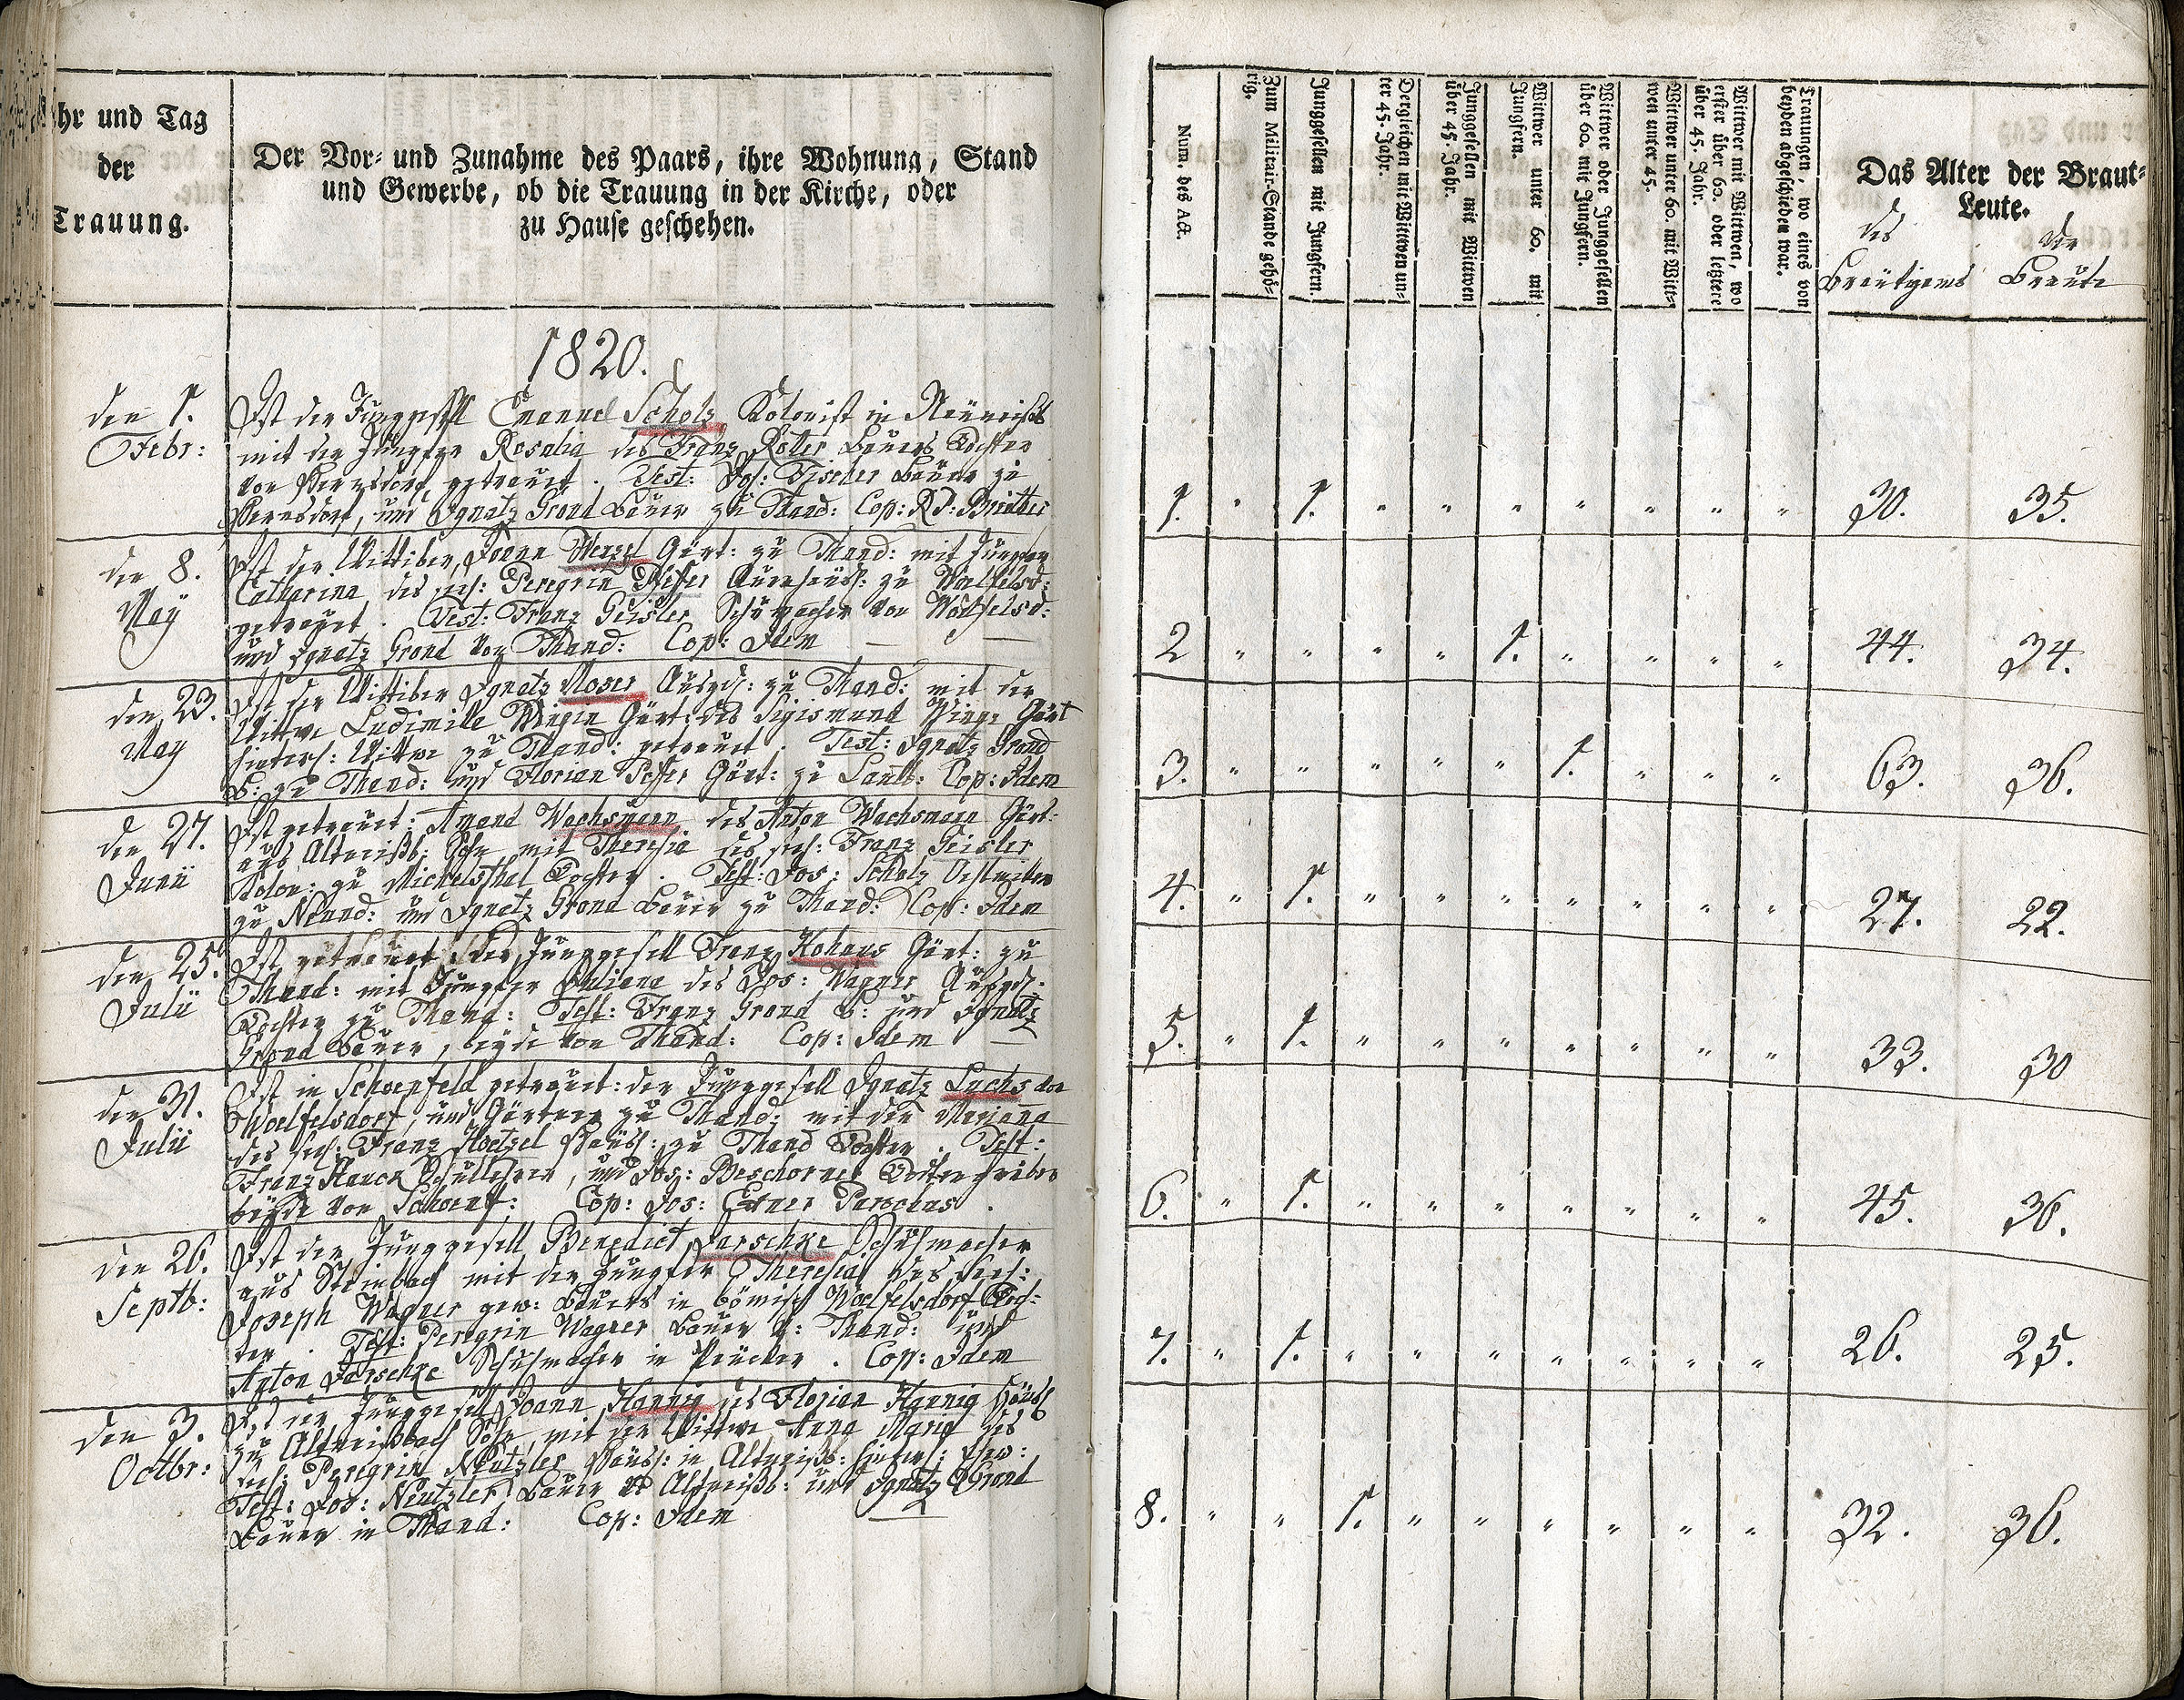 hr und Tag
der
Trauung.
Der Vor- und Zunahme des Paars, ihre Wohnung, Stand
und Gewerbe, ob die Trauung in der Kirche, oder
zu Hause geschehen.
1820.
den 1.
Febr:
Ist der Junggesell Emanuel Scholz Kolonist in
mit der Jungfer Rosalia des Franz Roller Bauers Tochter
von getraut. Test: Jos: Fischer Bauer zu
und Ignatz Grond Bauer zu Thand: Cop: Rd:
den 8.
May
Ist der Wittiber Joann Wenzel Gärt: zu Thand: mit Jungfer
Catharina des Peregrin zu Woelfelsd:
getraut. Test: Franz Geisler Schumacher von Wölfelsd:
und Ignatz Grond von Thand: Cop: Idem
den 23.
May
Ist der Wittiber Ignatz Moser zu Thand: mit der
Wittwe Ludimilla Gärt: des Sigismund Gärt
hinterl: Wittwe zu Thand: getraut. Test: Ignatz Grond
B: zu Thand: und Florian Gärt: zu Cop: Idem
den 27.
Junii
Ist getraut: Amand Wachsmann des Anton Wachsmann Gärt:
aus Altneißb: Sohn mit Theresia des Franz Geisler
Kolon: zu Michelsthal Tochter. Test: Jos: Scholz
zu Neund: und Ignatz Grond Bauer zu Thand: Cop: Idem
den 25.
Julii
Ist getraut der Junggesell Franz Kohaus Gärt: zu
Thand: mit Jungfer Juliana des Jos: Wagner
Tochter zu Thand: Test: Franz Grond B: und Ignatz
Grond Bauer, beyde von Thand: Cop: Idem
den 31.
Julii
Ist in Schoenfeld getraut: der Junggesell Ignatz Luchs von
Woelfelsdorf, und Gärtner zu Thand: mit der Mariana
des Franz Hoetzel Häusl: zu Thand Tochter. Test:
Franz Hauck Schullehrer, und Jos: Beschorner
beyde von Schoenf: Cop: Jos: Exner Parochus.
den 26.
Septb:
Ist der Junggesell Benedict Jarschke Schuhmacher
aus Steinbach mit der Jungfer Theresia des
Joseph Wagner gew: Bauers in bömisch Woelfelsdorf Toch:
ter. Test: Peregrin Wagner Bauer z: Thand: und
Anton Jarschke Schuhmacher in Cop: Idem
den 3.
Octbr:
Ist der Junggesell Joann Hannig des Florian Hannig Häusl
zu Altneißbach Sohn, mit der Wittwe Anna Maria des
Peregrin Neutzler Häusl: in Altneißb: hinterl:
Test: Jos: Neutzler Bauer Altneißb: und Ignatz Grond
Bauer in Thand: Cop: Idem
Num. des Act.
Zum Militair-Stande gehö-
rig.
Junggesellen mit Jungfern.
Dergleichen mit Wittwen un-
ter 45. Jahr.
Junggesellen mit Wittwen
über 45. Jahr.
Wittwer unter 60. mit
Jungfern.
Wittwer oder Junggesellen
über 60. mit Jungfern.
Wittwer unter 60. mit Witt-
wen unter 45.
Wittwer mit Wittwen, wo
erster über 60. oder letztere
über 45. Jahr.
Trauungen, wo eines von
beyden abgeschieden war.
Das Alter der Braut-
Leute.
des
Breutigams
der
Braute
1. " 1. " " " " " " " 30. 35.
2 " " " " 1. " " " " 44. 34.
3. " " " " " 1. " " " 63. 36.
4. " 1. " " " " " " " 27. 22.
5. " 1. " " " " " " " 33. 30
6. " 1. " " " " " " " 45. 36.
7. " 1. " " " " " " " 26. 25.
8. " " 1. " " " " " " 32. 36.